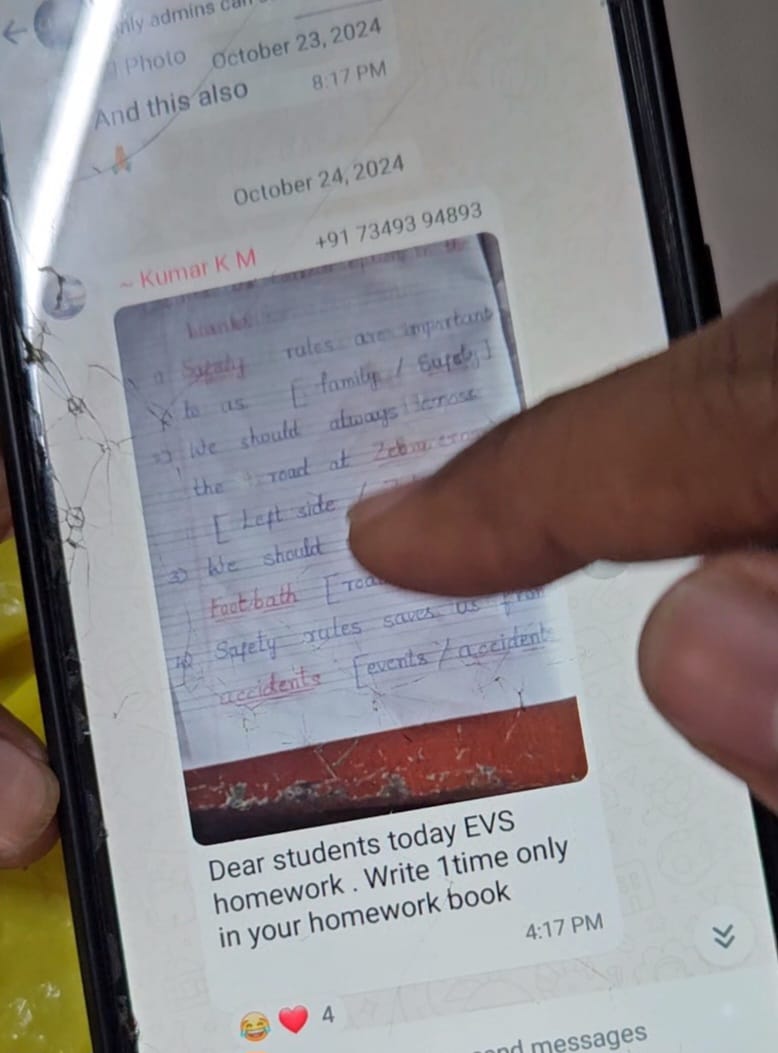 only admins can
Photo October 23, 2024
And this also 8:17 PM
October 24, 2024
~ Kumar K M +91 73493 94893
blanks
1) Safety rules are important
to us [ family / Safety ]
2) We should always cross
the road at Zebra
[ Left side /
3) We should
Footbath [
4) Safety rules saves us from
accidents [events / accidents
Dear students today EVS
homework . Write 1time only
in your homework book
4:17 PM
😂❤️ 4
messages